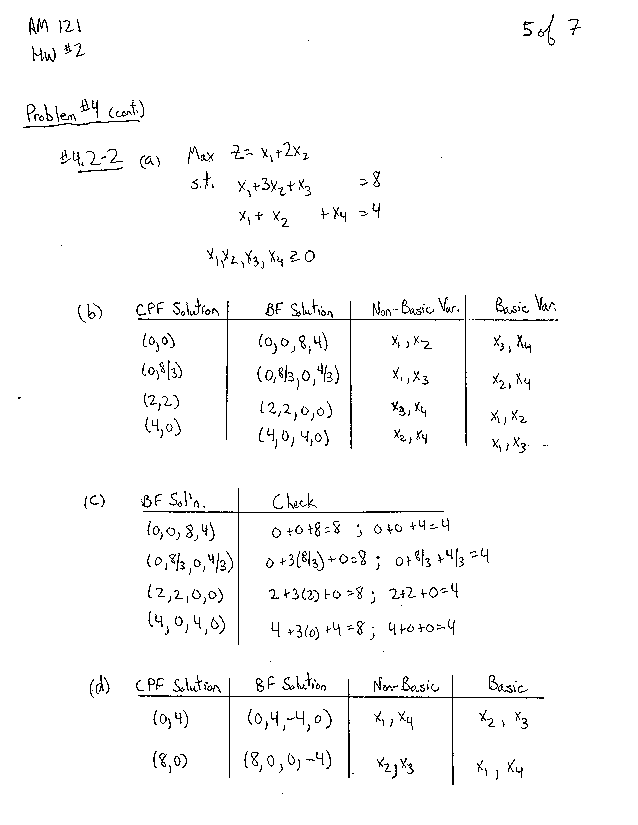 AM 121
5 of 7
HW #2
Problem #4 (cont.)
#4.2-2 (a) Max Z = x₁+2x₂
s.t. x₁+3x₂+x₃ =8
x₁+ x₂ +x₄ =4
x₁,x₂,x₃,x₄ ≥0
(b) CPF Solution BF Solution Non-Basic Var. Basic Var.
(0,0) (0,0,8,4) x₁,x₂ x₃,x₄
(0,8/3) (0,8/3,0,4/3) x₁,x₃ x₂,x₄
(2,2) (2,2,0,0) x₃,x₄ x₁,x₂
(4,0) (4,0,4,0) x₂,x₄ x₁,x₃
(c) BF Sol'n. Check
(0,0,8,4) 0+0+8=8 ; 0+0+4=4
(0,8/3,0,4/3) 0+3(8/3)+0=8 ; 0+8/3+4/3=4
(2,2,0,0) 2+3(2)+0=8 ; 2+2+0=4
(4,0,4,0) 4+3(0)+4=8 ; 4+0+0=4
(d) CPF Solution BF Solution Non-Basic Basic
(0,4) (0,4,-4,0) x₁,x₄ x₂, x₃
(8,0) (8,0,0,-4) x₂,x₃ x₁, x₄